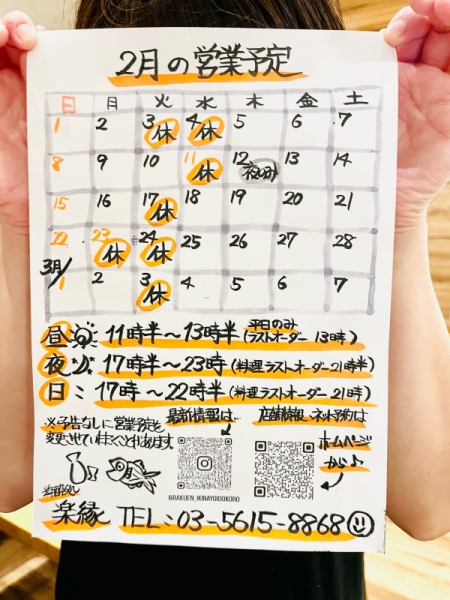 2月の営業予定
日 月 火 水 木 金 土
1 2 3休 4休 5 6 7
8 9 10 11休 12夜のみ 13 14
15 16 17休 18 19 20 21
22 23休 24休 25 26 27 28
3月/1 2 3休 4 5 6 7
昼 11時半〜13時半 平日のみ (ラストオーダー 13時)
夜 17時半〜23時 (料理ラストオーダー21時半)
日: 17時〜22時半 (料理ラストオーダー21時)
※予告なしに営業予定を
変更させていただくことがあります。
最新情報は…
@RAKUEN_IKINAYOIDOKORO
店舗情報、ネット予約は
ホームページ
から♪
楽縁 TEL:03-5615-8868